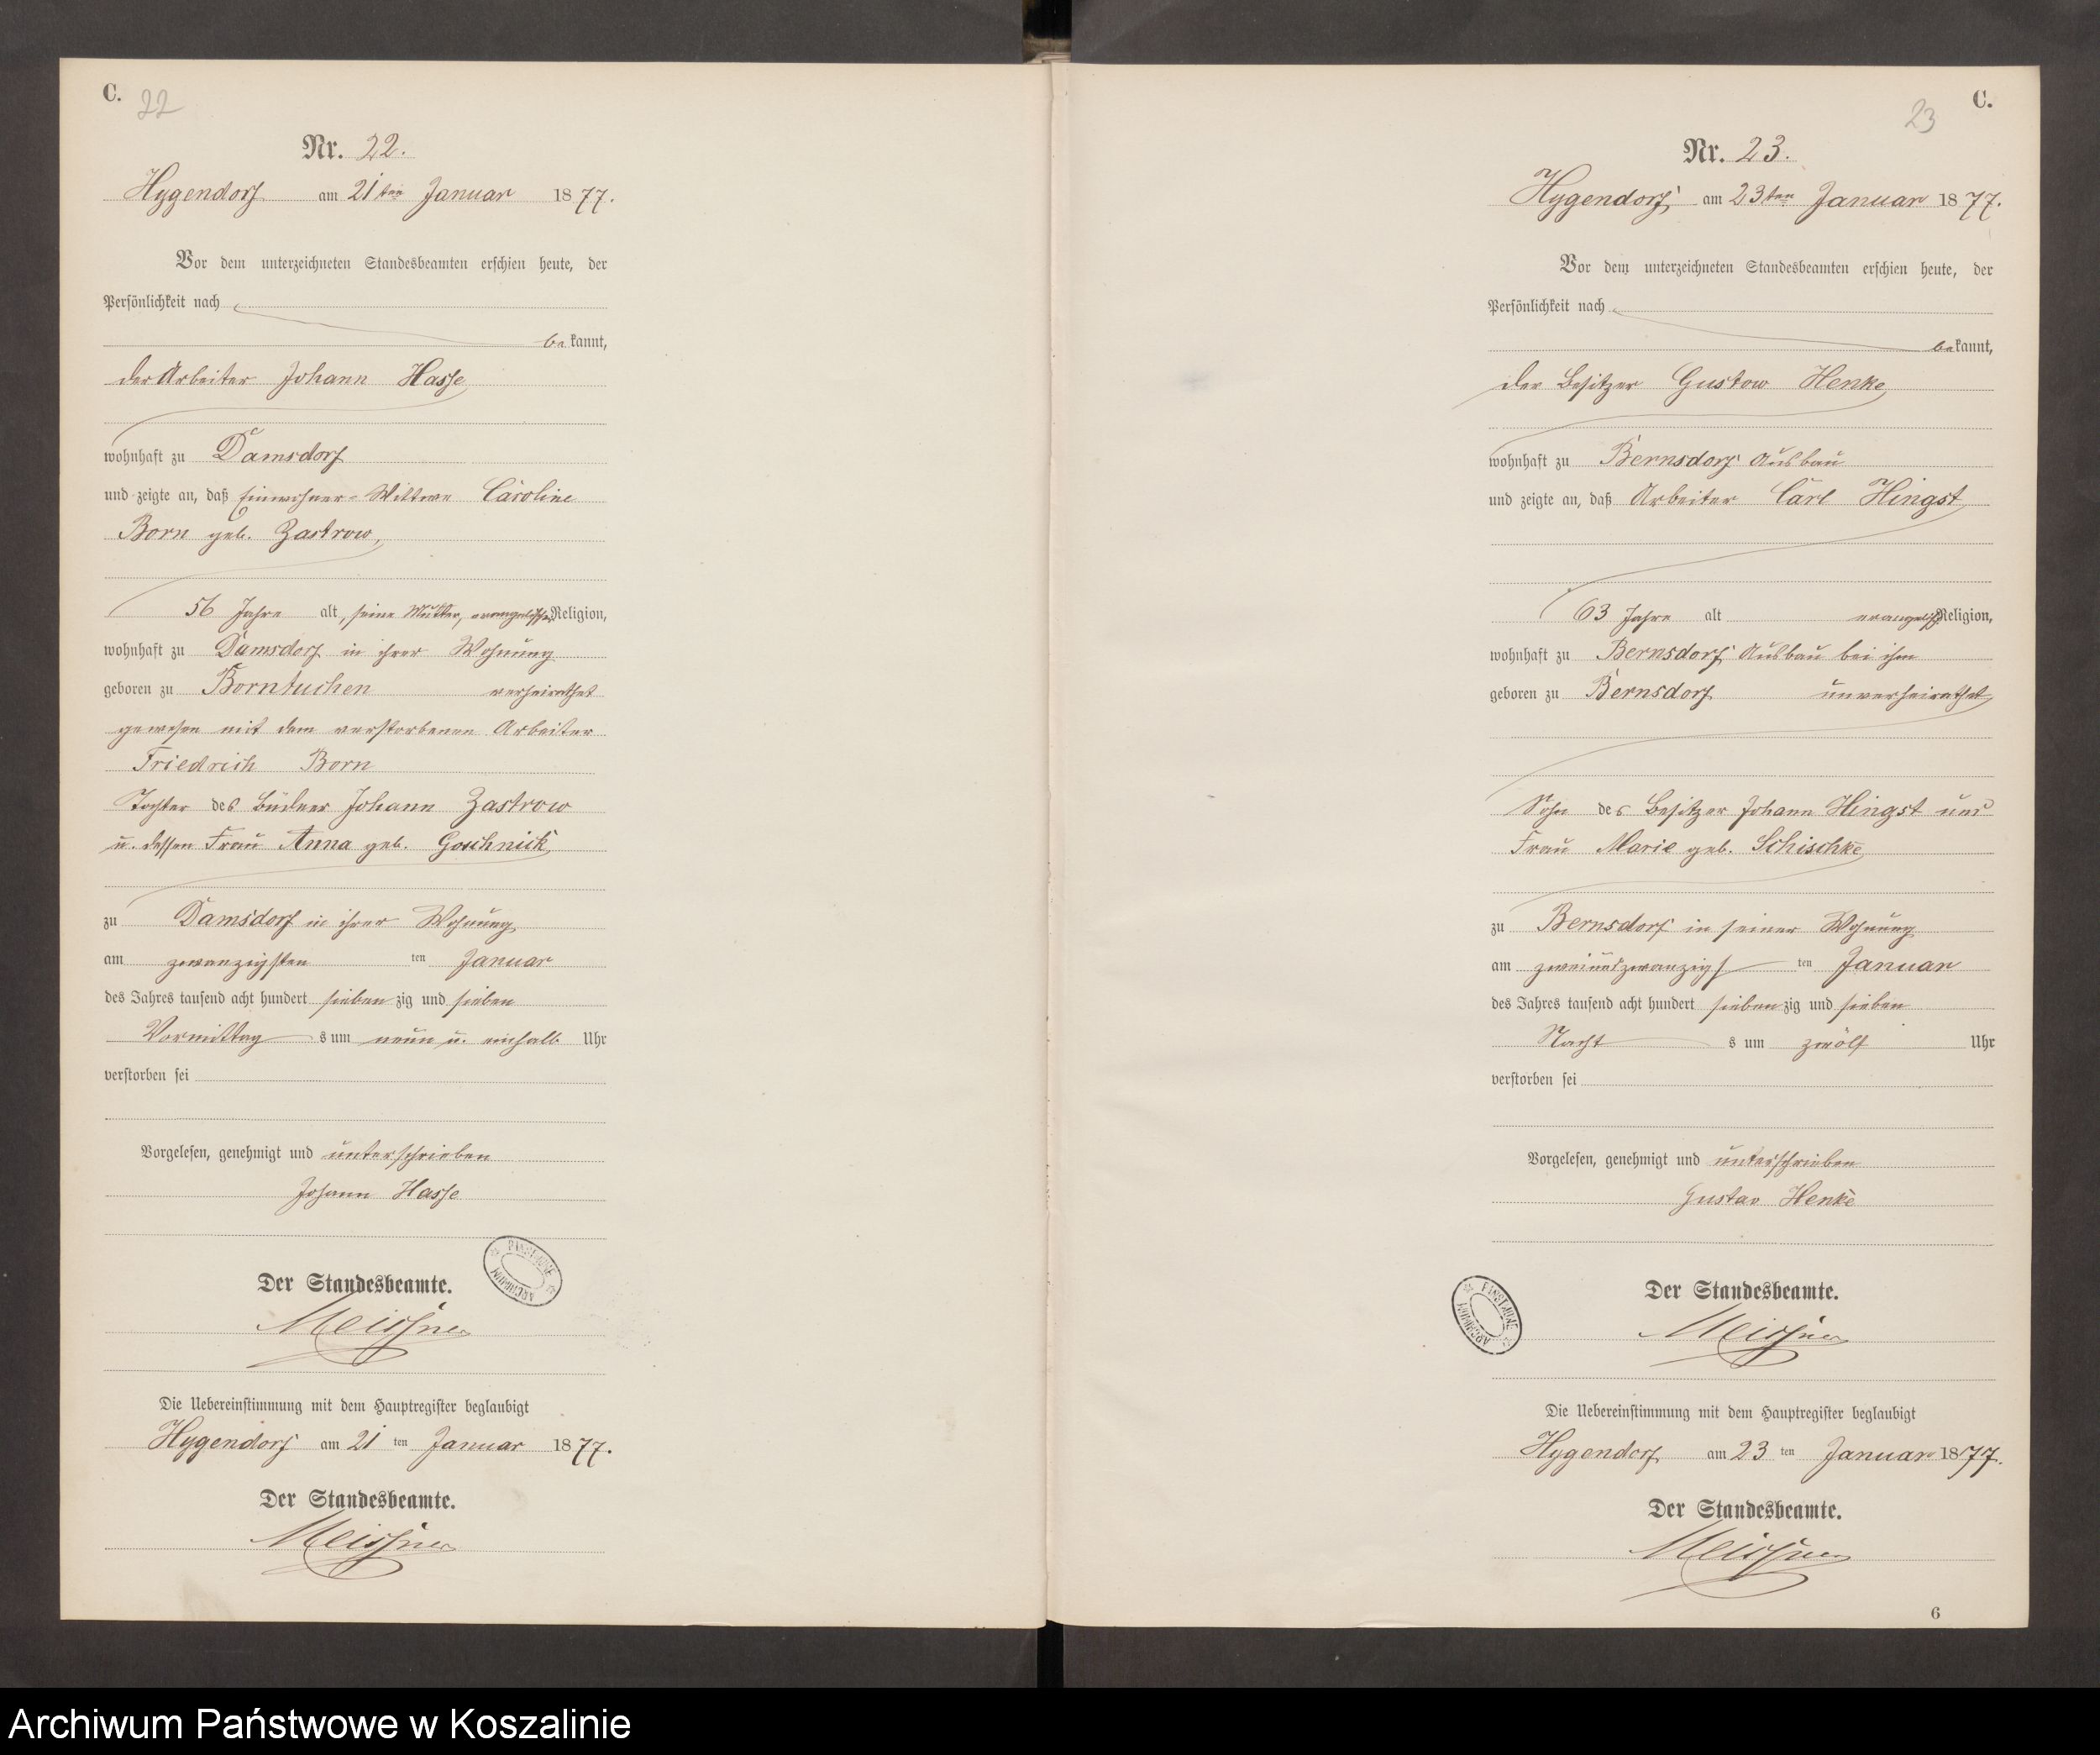 C.
22
Nr. 22.
Hygendorf am 21ten Januar 1877.
Vor dem unterzeichneten Standesbeamten erschien heute, der
Persönlichkeit nach
bekannt,
der Arbeiter Johann Hasse
wohnhaft zu Damsdorf
und zeigte an, daß Einwohner-Wittwe Caroline
Born geb. Zastrow,
56 Jahre alt, seine Mutter, evangelischer Religion,
wohnhaft zu Damsdorf in ihrer Wohnung
geboren zu Borntuchen verheirathet
gewesen mit dem verstorbenen Arbeiter
Friedrich Born
Tochter des Büdner Johann Zastrow
u. dessen Frau Anna geb. Goschnick
zu Damsdorf in ihrer Wohnung
am zwanzigsten ten Januar
des Jahres tausend acht hundert siebenzig und sieben
Vormittags um neun u. einhalb Uhr
verstorben sei
Vorgelesen, genehmigt und unterschrieben
Johann Hasse
Der Standesbeamte.
Meissner
Die Uebereinstimmung mit dem Hauptregister beglaubigt
Hygendorf am 21 ten Januar 1877.
Der Standesbeamte.
Meissner
PAŃSTWOWE ARCHIWUM
C.
23
Nr. 23.
Hygendorf am 23ten Januar 1877.
Vor dem unterzeichneten Standesbeamten erschien heute, der
Persönlichkeit nach
bekannt,
der Besitzer Gustav Henke
wohnhaft zu Bernsdorf Ausbau
und zeigte an, daß Arbeiter Carl Hingst
63 Jahre alt evangelisch Religion,
wohnhaft zu Bernsdorf Ausbau bei ihm
geboren zu Bernsdorf unverheirathet
Sohn des Besitzer Johann Hingst und
Frau Marie geb. Schischke
zu Bernsdorf in seiner Wohnung
am zweiundzwanzigsten Januar
des Jahres tausend acht hundert siebenzig und sieben
Nachts um zwölf Uhr
verstorben sei
Vorgelesen, genehmigt und unterschrieben
Gustav Henke
Der Standesbeamte.
Meissner
Die Uebereinstimmung mit dem Hauptregister beglaubigt
Hygendorf am 23 ten Januar 1877.
Der Standesbeamte.
Meissner
PAŃSTWOWE ARCHIWUM
6
Archiwum Państwowe w Koszalinie